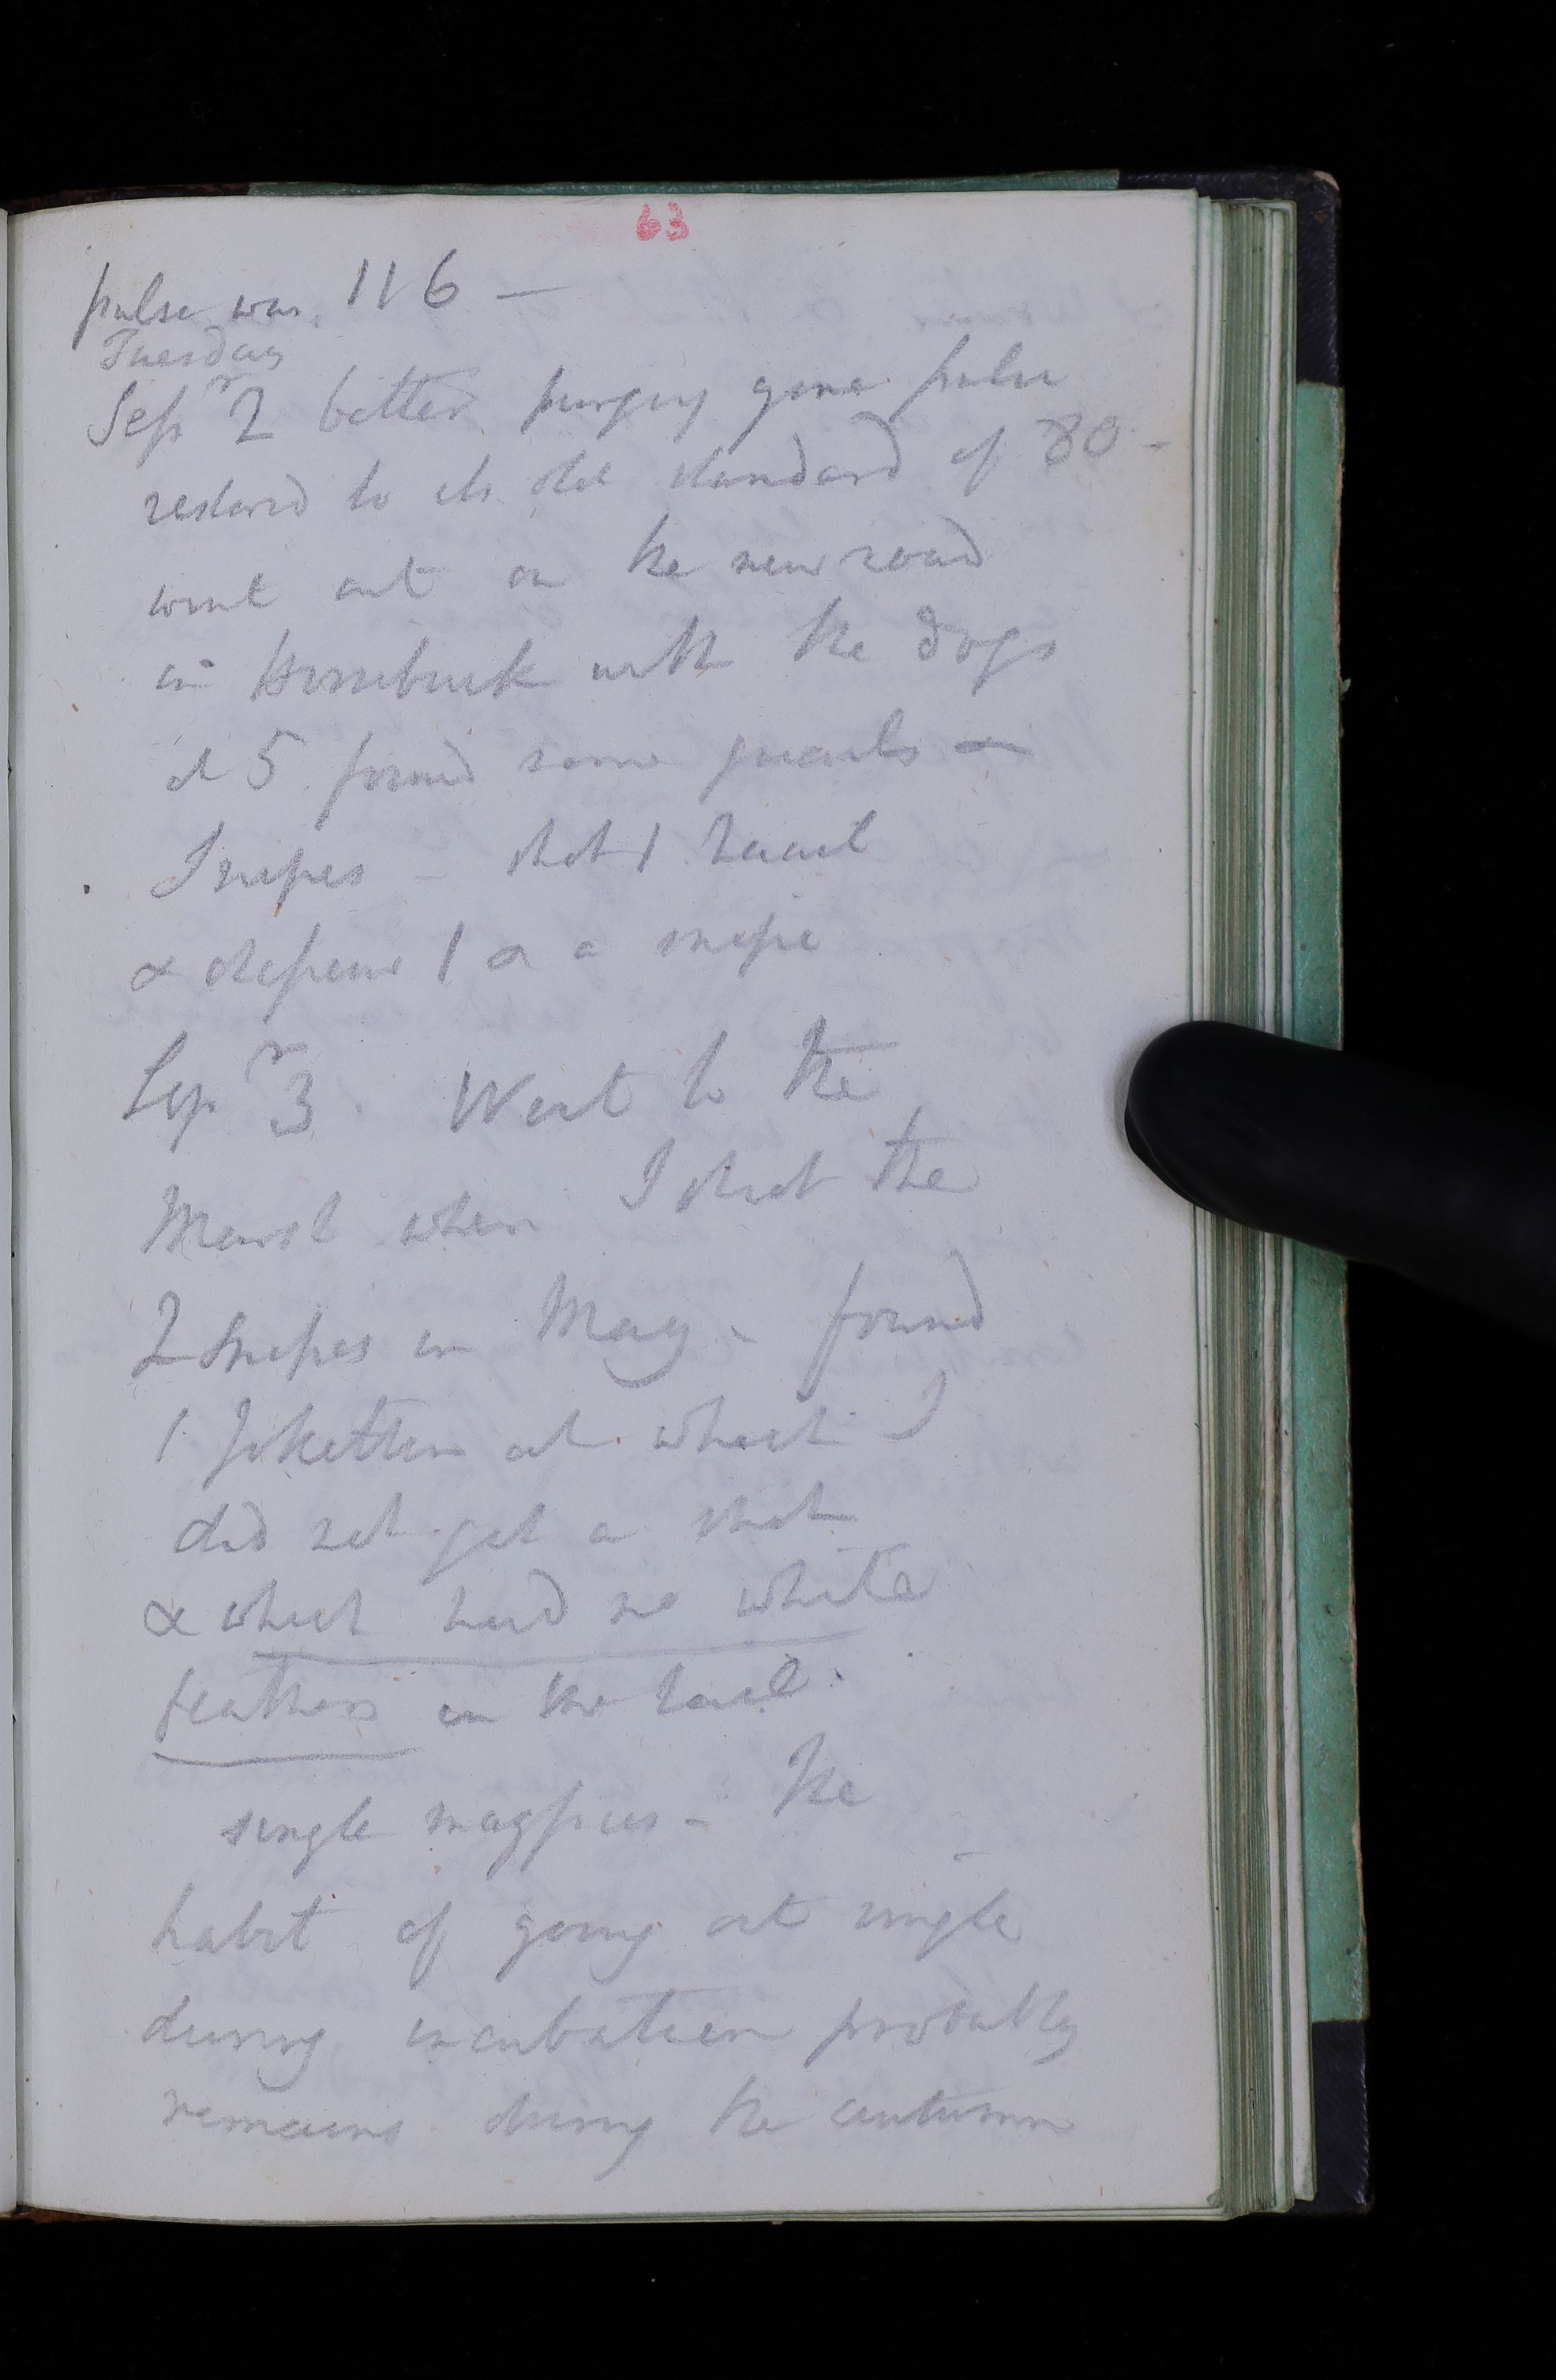 63
pulse was 116 —
Tuesday
Sepr 2 better purging gone pulse
restored to its old standard of 80 -
went out on the new road
in with the dogs
at 5 found some quails &
Snipes - shot 1 quail
& 1 & a snipe
Sepr 3. Went to the
Marsh where I shot the
2 Snipes in May - found
1 at which I
did not get a shot
& which had no white
feathers in the tail.
single magpies - The
habit of going out single
during incubation probably
remains during the autumn